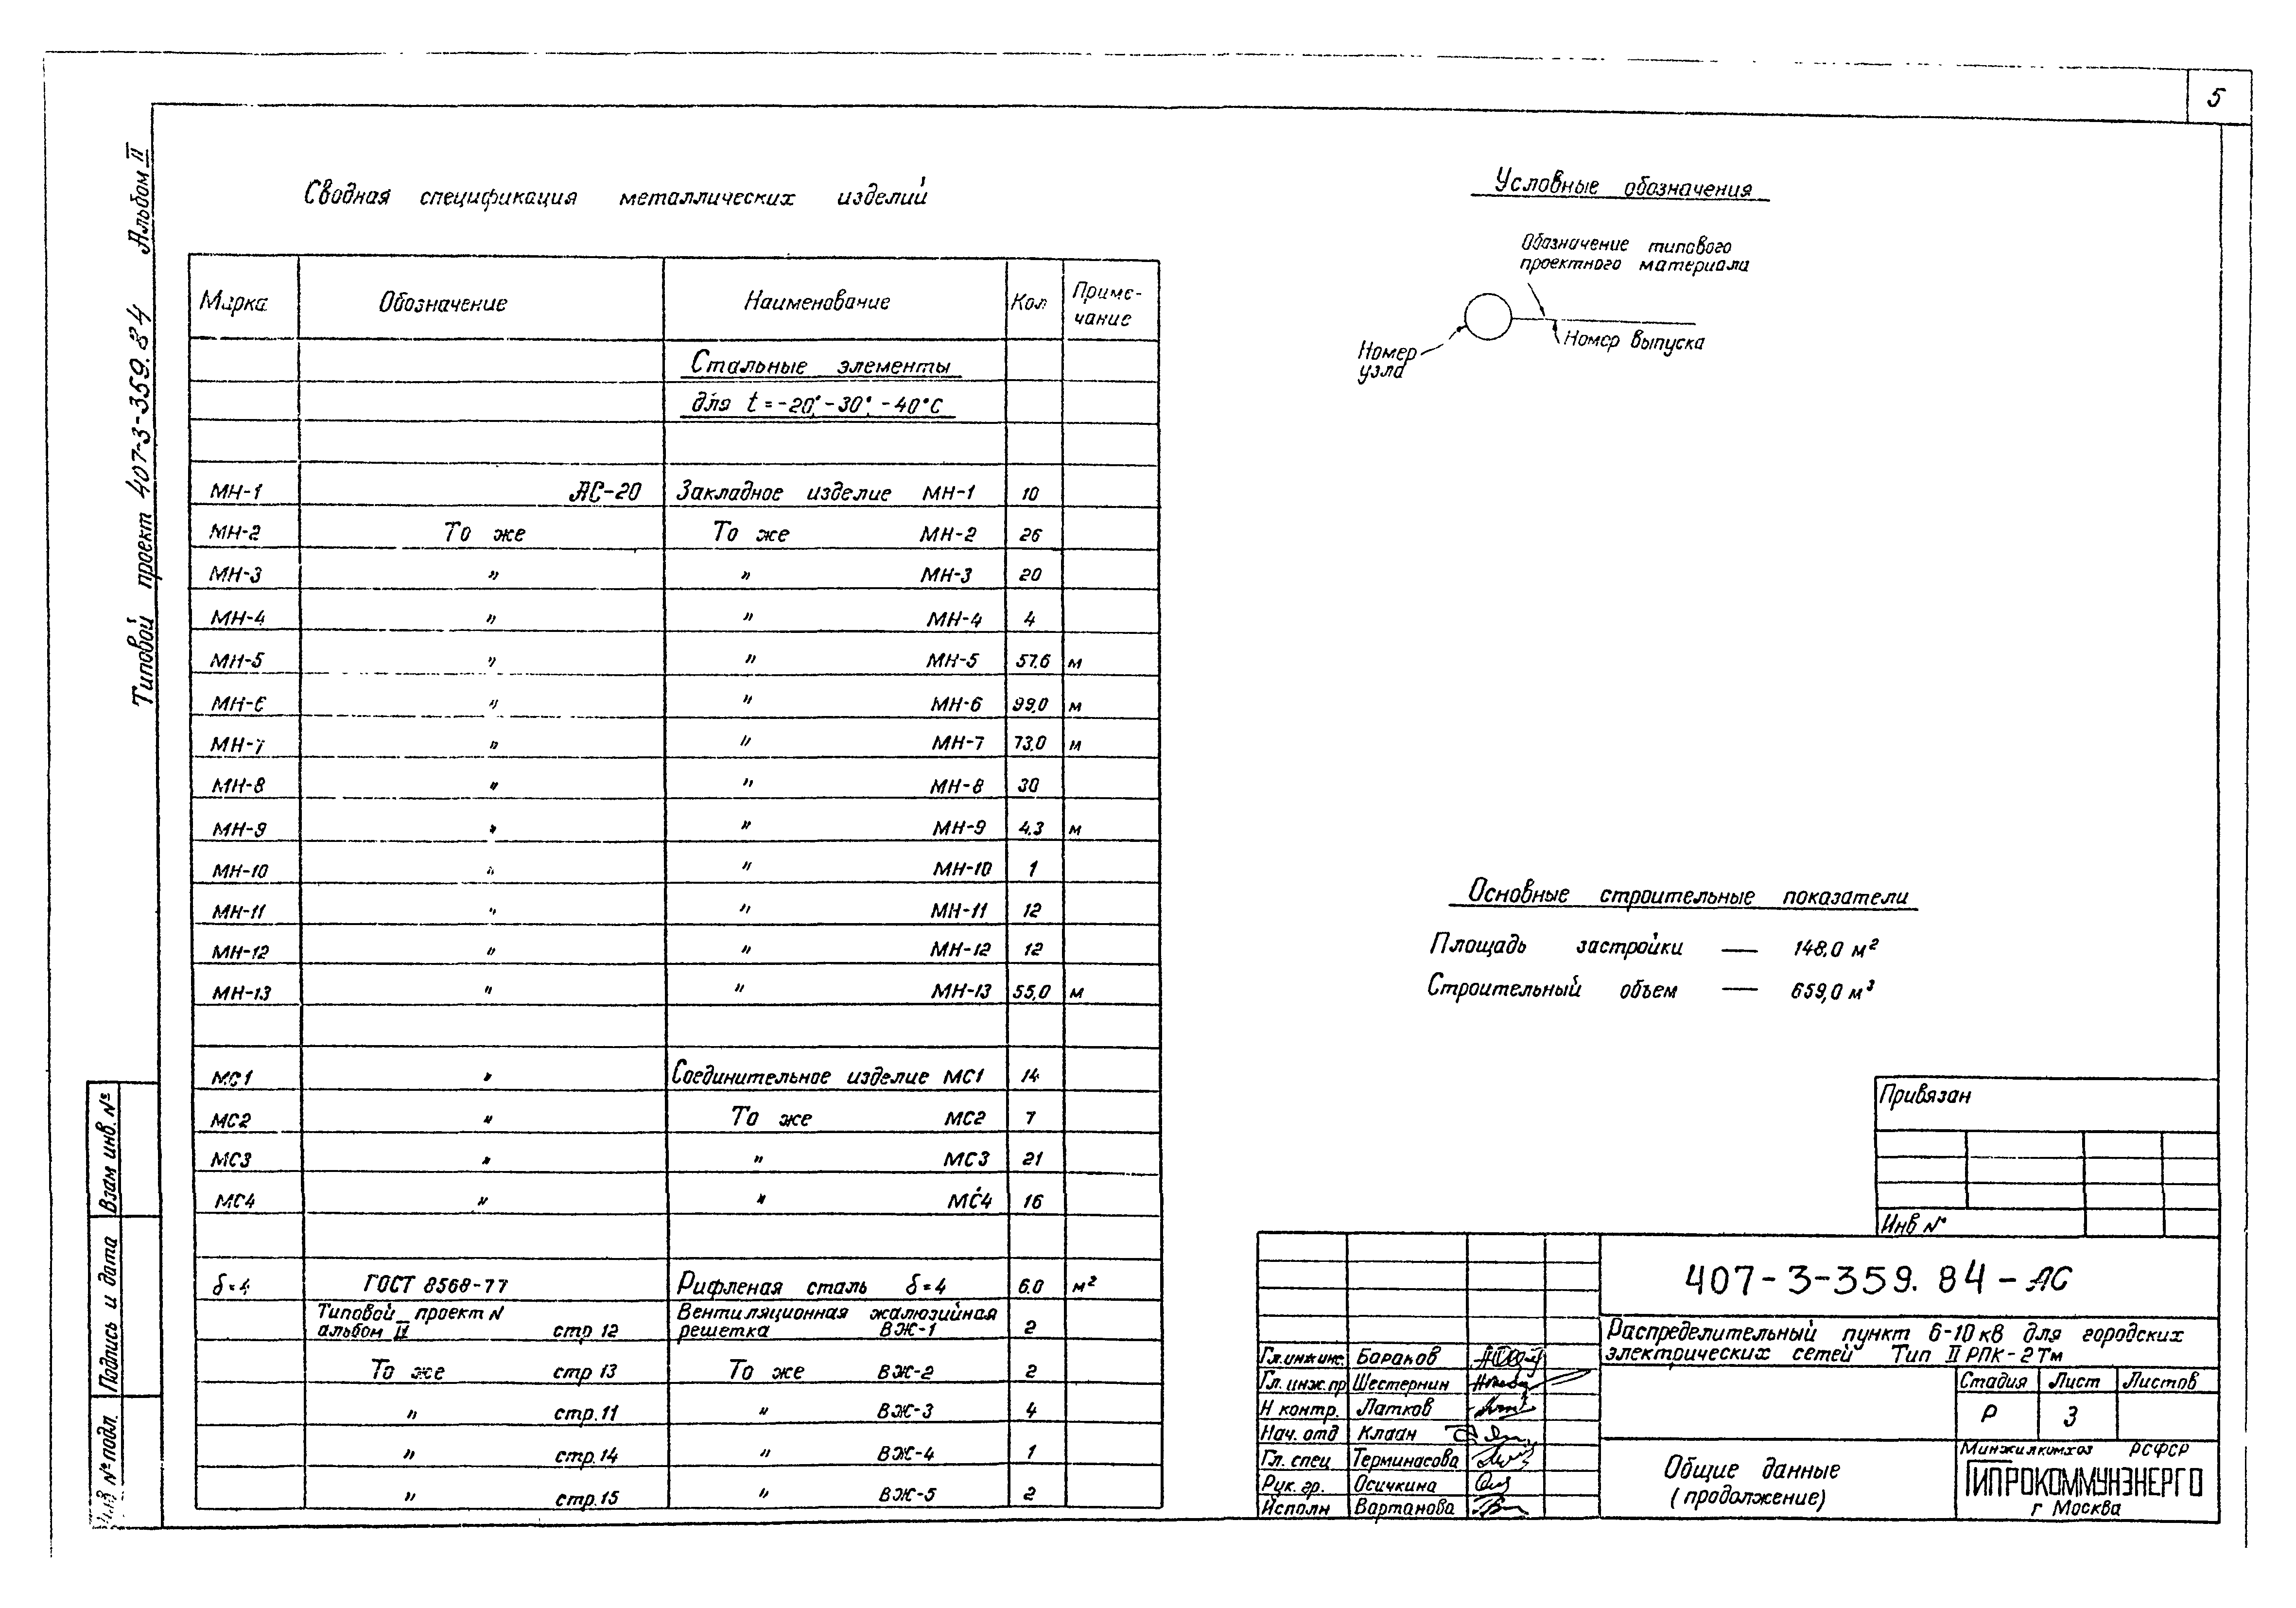 5
Типовой проект 407-3-359.84 Альбом II
Сводная спецификация металлических изделий
Марка Обозначение Наименование Кол Приме-
чание
Стальные элементы
для t = -20°, -30°, -40°С
МН-1 АС-20 Закладное изделие МН-1 10
МН-2 То же То же МН-2 26
МН-3 " " МН-3 20
МН-4 " " МН-4 4
МН-5 " " МН-5 57.6 м
МН-6 " " МН-6 99,0 м
МН-7 " " МН-7 73.0 м
МН-8 " " МН-8 30
МН-9 " " МН-9 4.3 м
МН-10 " " МН-10 1
МН-11 " " МН-11 12
МН-12 " " МН-12 12
МН-13 " " МН-13 55,0 м
МС1 " Соединительное изделие МС1 14
МС2 " То же МС2 7
МС3 " " МС3 21
МС4 " " МС4 16
δ=4 ГОСТ 8568-77 Рифленая сталь δ=4 6.0 м²
Типовой проект N Вентиляционная жалюзийная
альбом II стр 12 решетка ВЖ-1 2
То же стр 13 То же ВЖ-2 2
" стр.11 " ВЖ-3 4
" стр.14 " ВЖ-4 1
" стр.15 " ВЖ-5 2
Условные обозначения
Обозначение типового
проектного материала
Номер выпуска
Номер
узла
Основные строительные показатели
Площадь застройки — 148,0 м²
Строительный объем — 659,0 м³
Привязан
Инв №
407-3-359.84-АС
Распределительный пункт 6-10 кв для городских
электрических сетей Тип II РПК-2Тм
Гл.инж.инс. Баранов
Гл. инж.пр Шестернин
Н контр. Латков
Нач. отд Клаан
Гл. спец Терминасова
Рук. гр. Осичкина
Исполн Вартанова
Стадия Лист Листов
Р 3
Общие данные
(продолжение)
Минжилкомхоз РСФСР
ГИПРОКОММУНЭНЕРГО
г Москва
Взам инв. №
Подпись и дата
№ подл.